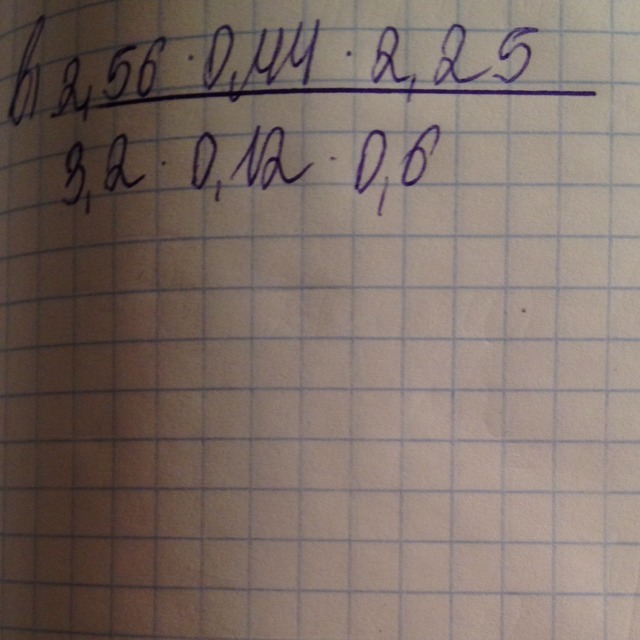 б) 2,56 · 0,44 · 2,25
3,2 · 0,12 · 0,6